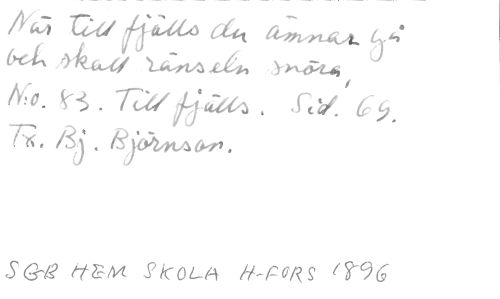 När till fjälls du ämnar gå
och skall ränseln snöra,
N:o. 83. Till fjälls. Sid. 69.
Tx. Bj. Björnson.
SGB HEM SKOLA H-FORS 1896